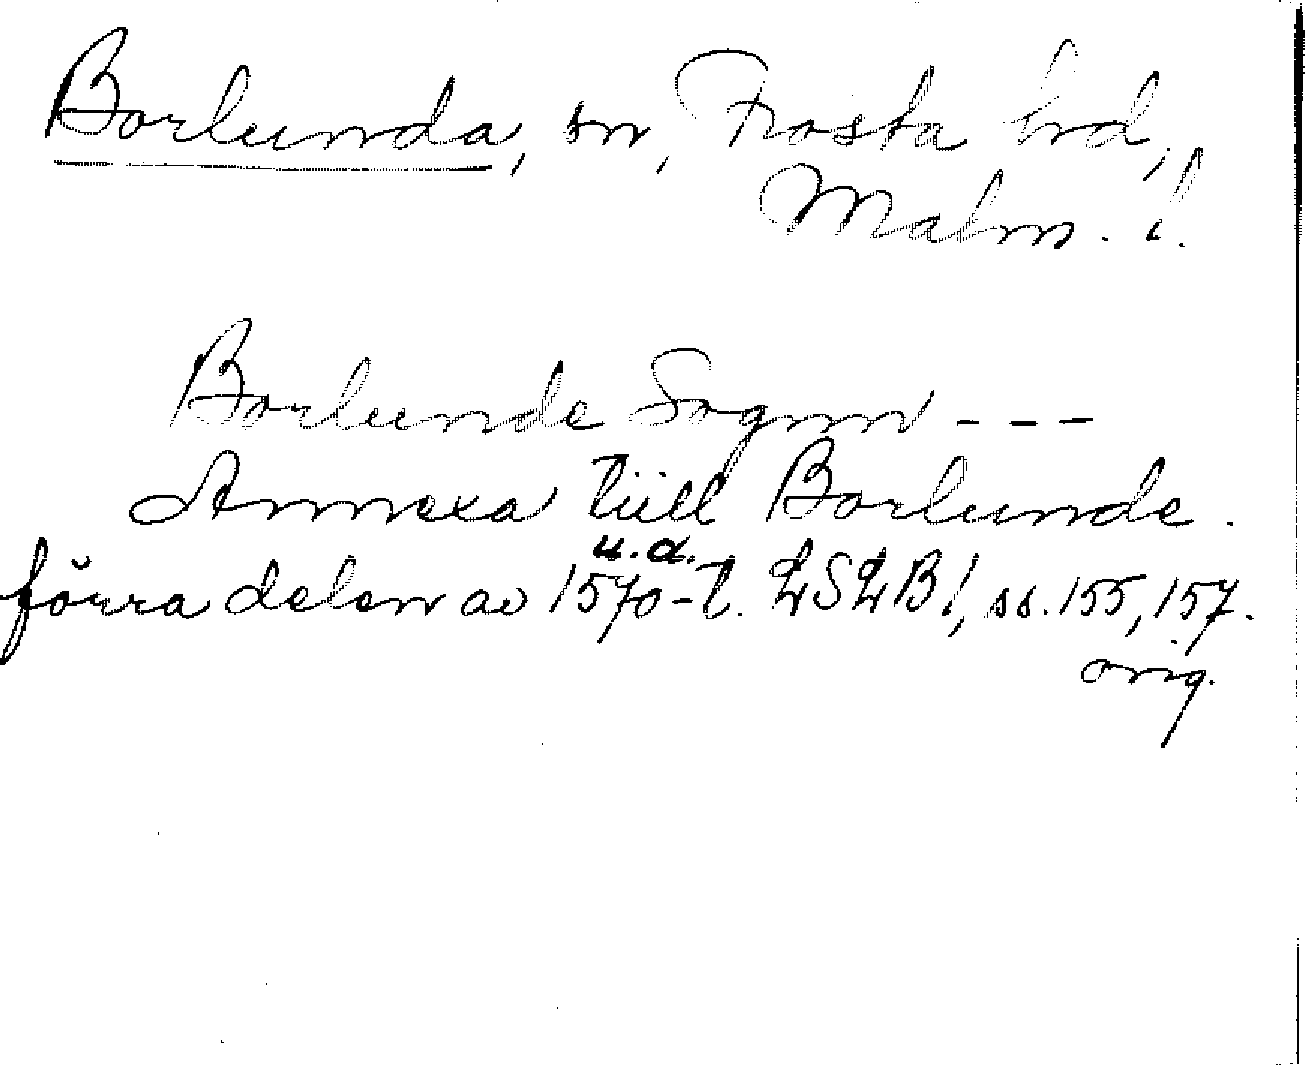 Borlunda, sn, Frosta hd,
Malm. l.
Borlunde Sognn - - -
Annexa tiill Borlunde.
u.a.
förra delen av 1570-t. LSLB!, ss. 155, 157.
orig.